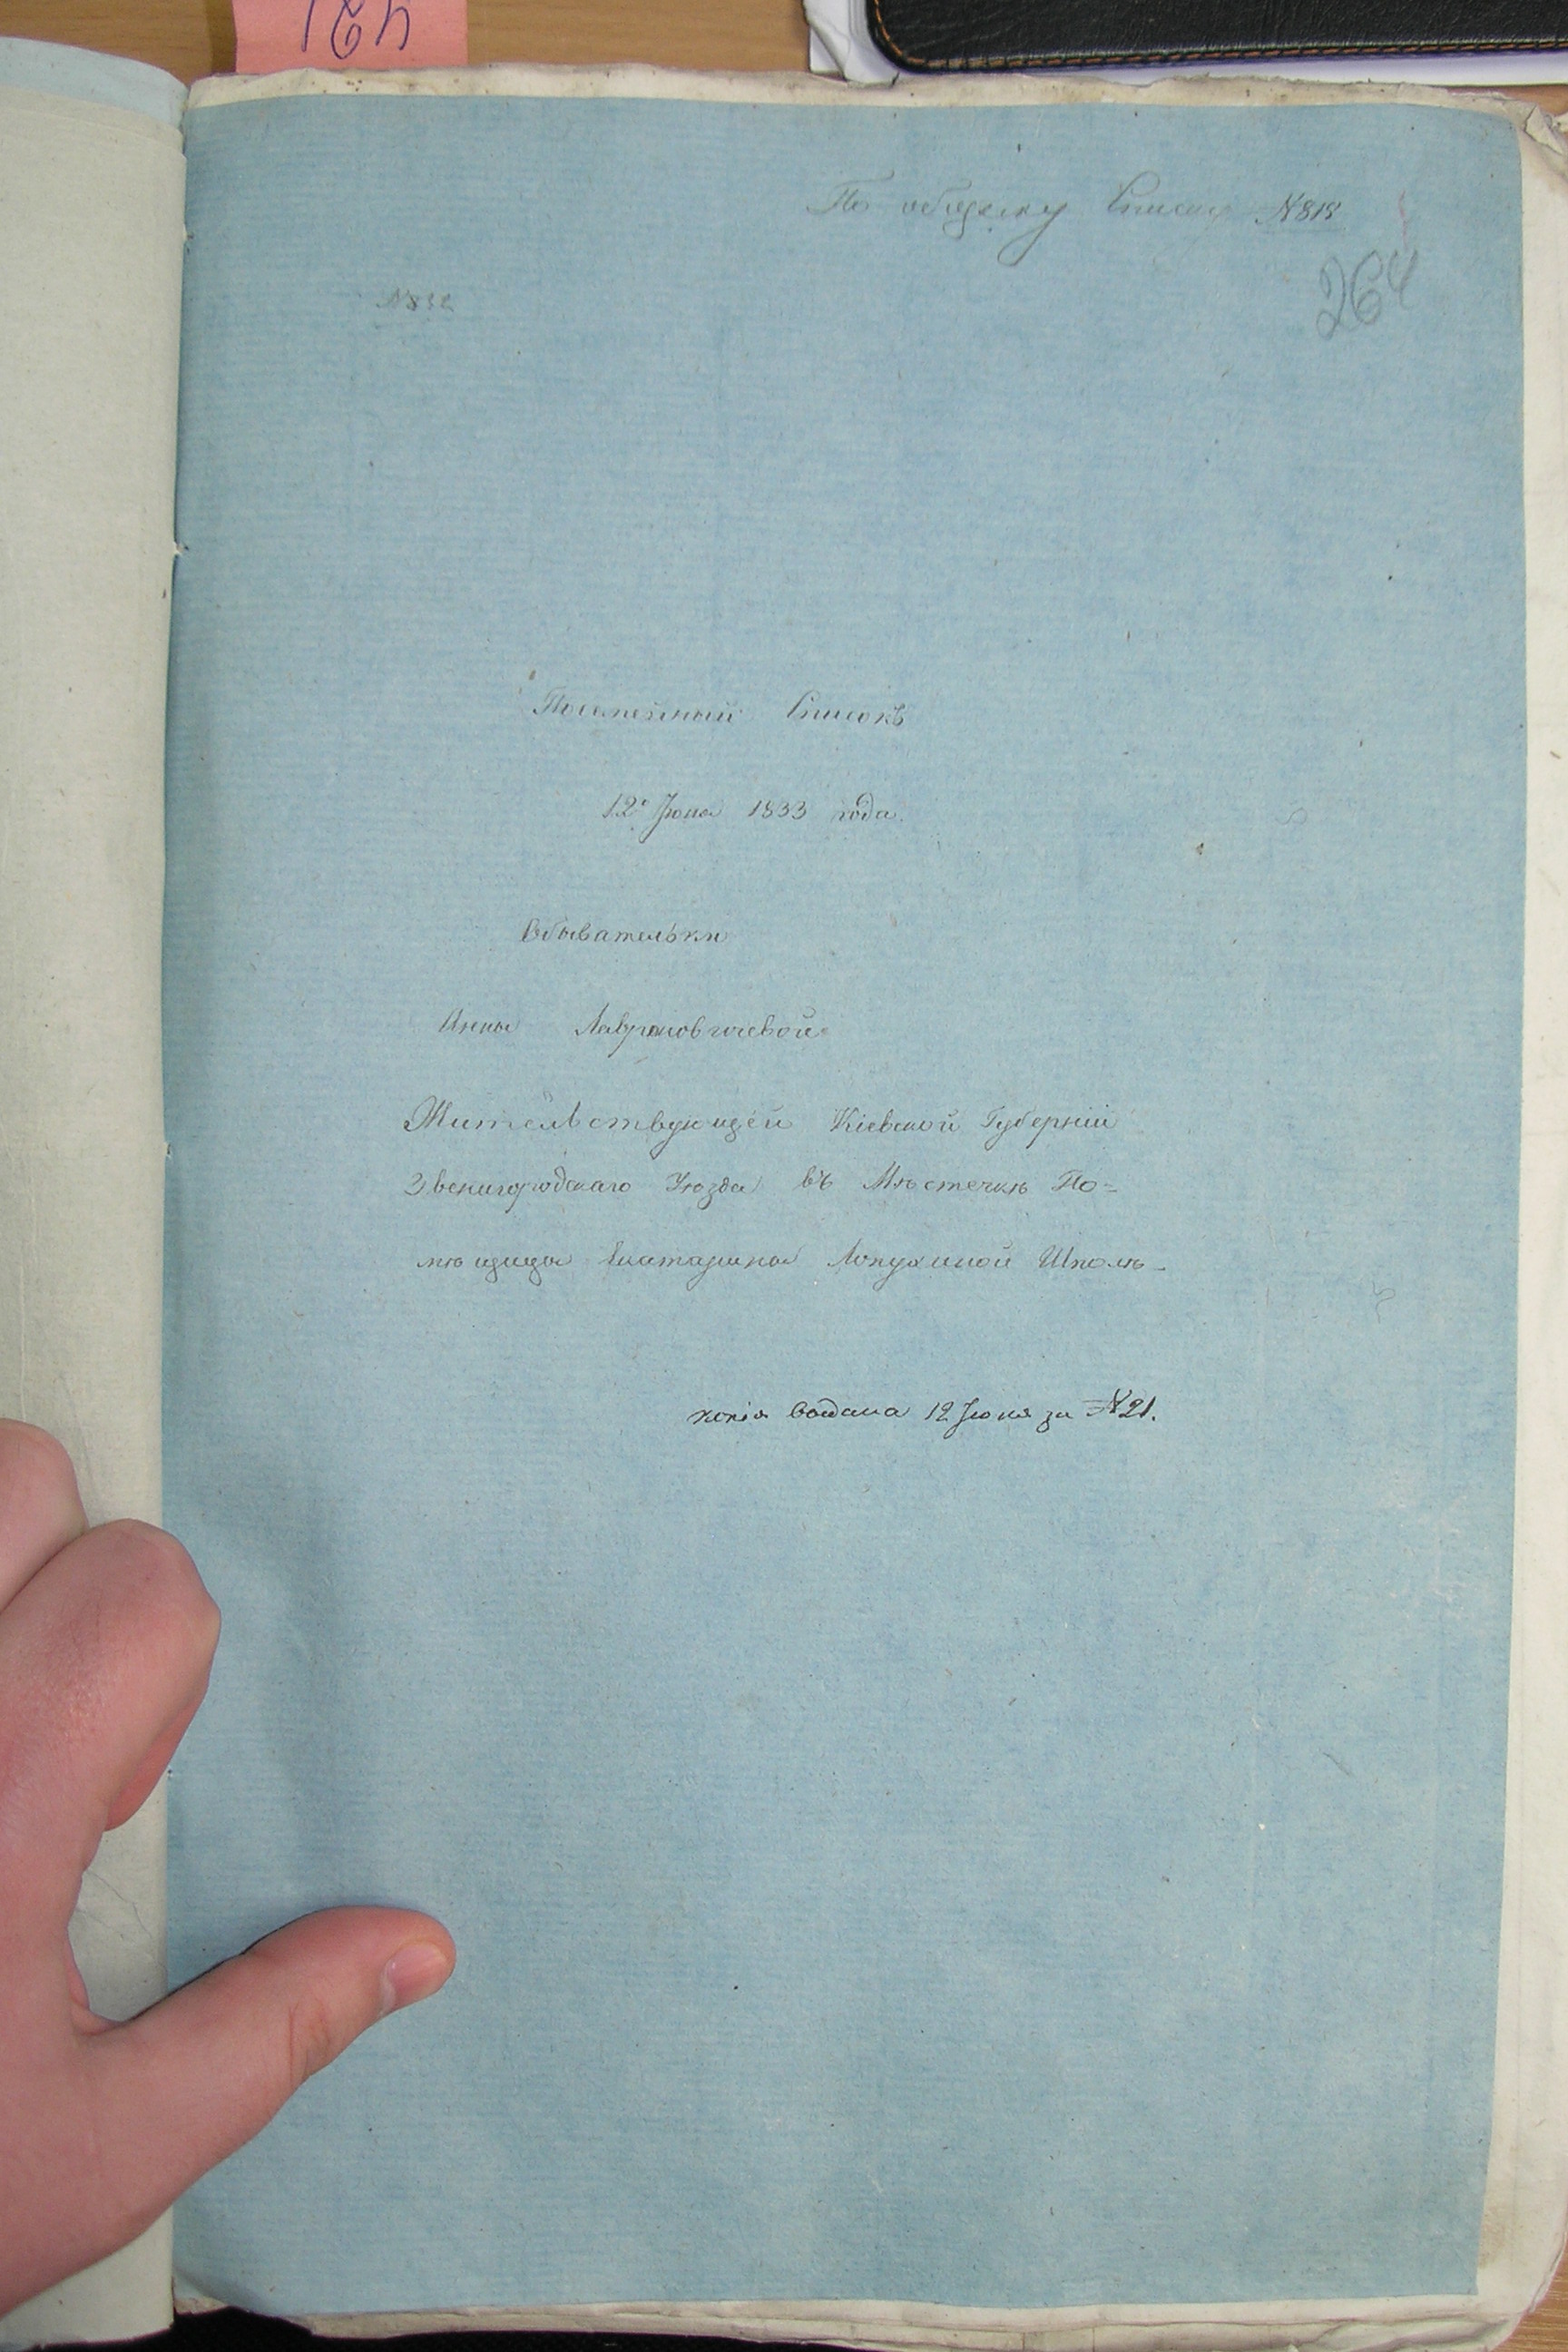 По общему Списку №818
264
№832
Посемейный Списокъ
12º Июня 1833 года.
Обывательки
Анны Лавриновичевой
Жительствующей Кіевской Губерніи
Звенигородскаго Уѣзда въ Мѣстечкѣ По=
мѣщицы Екатарины Лопухиной Шполѣ.
копія выдана 12 Июня за №21.